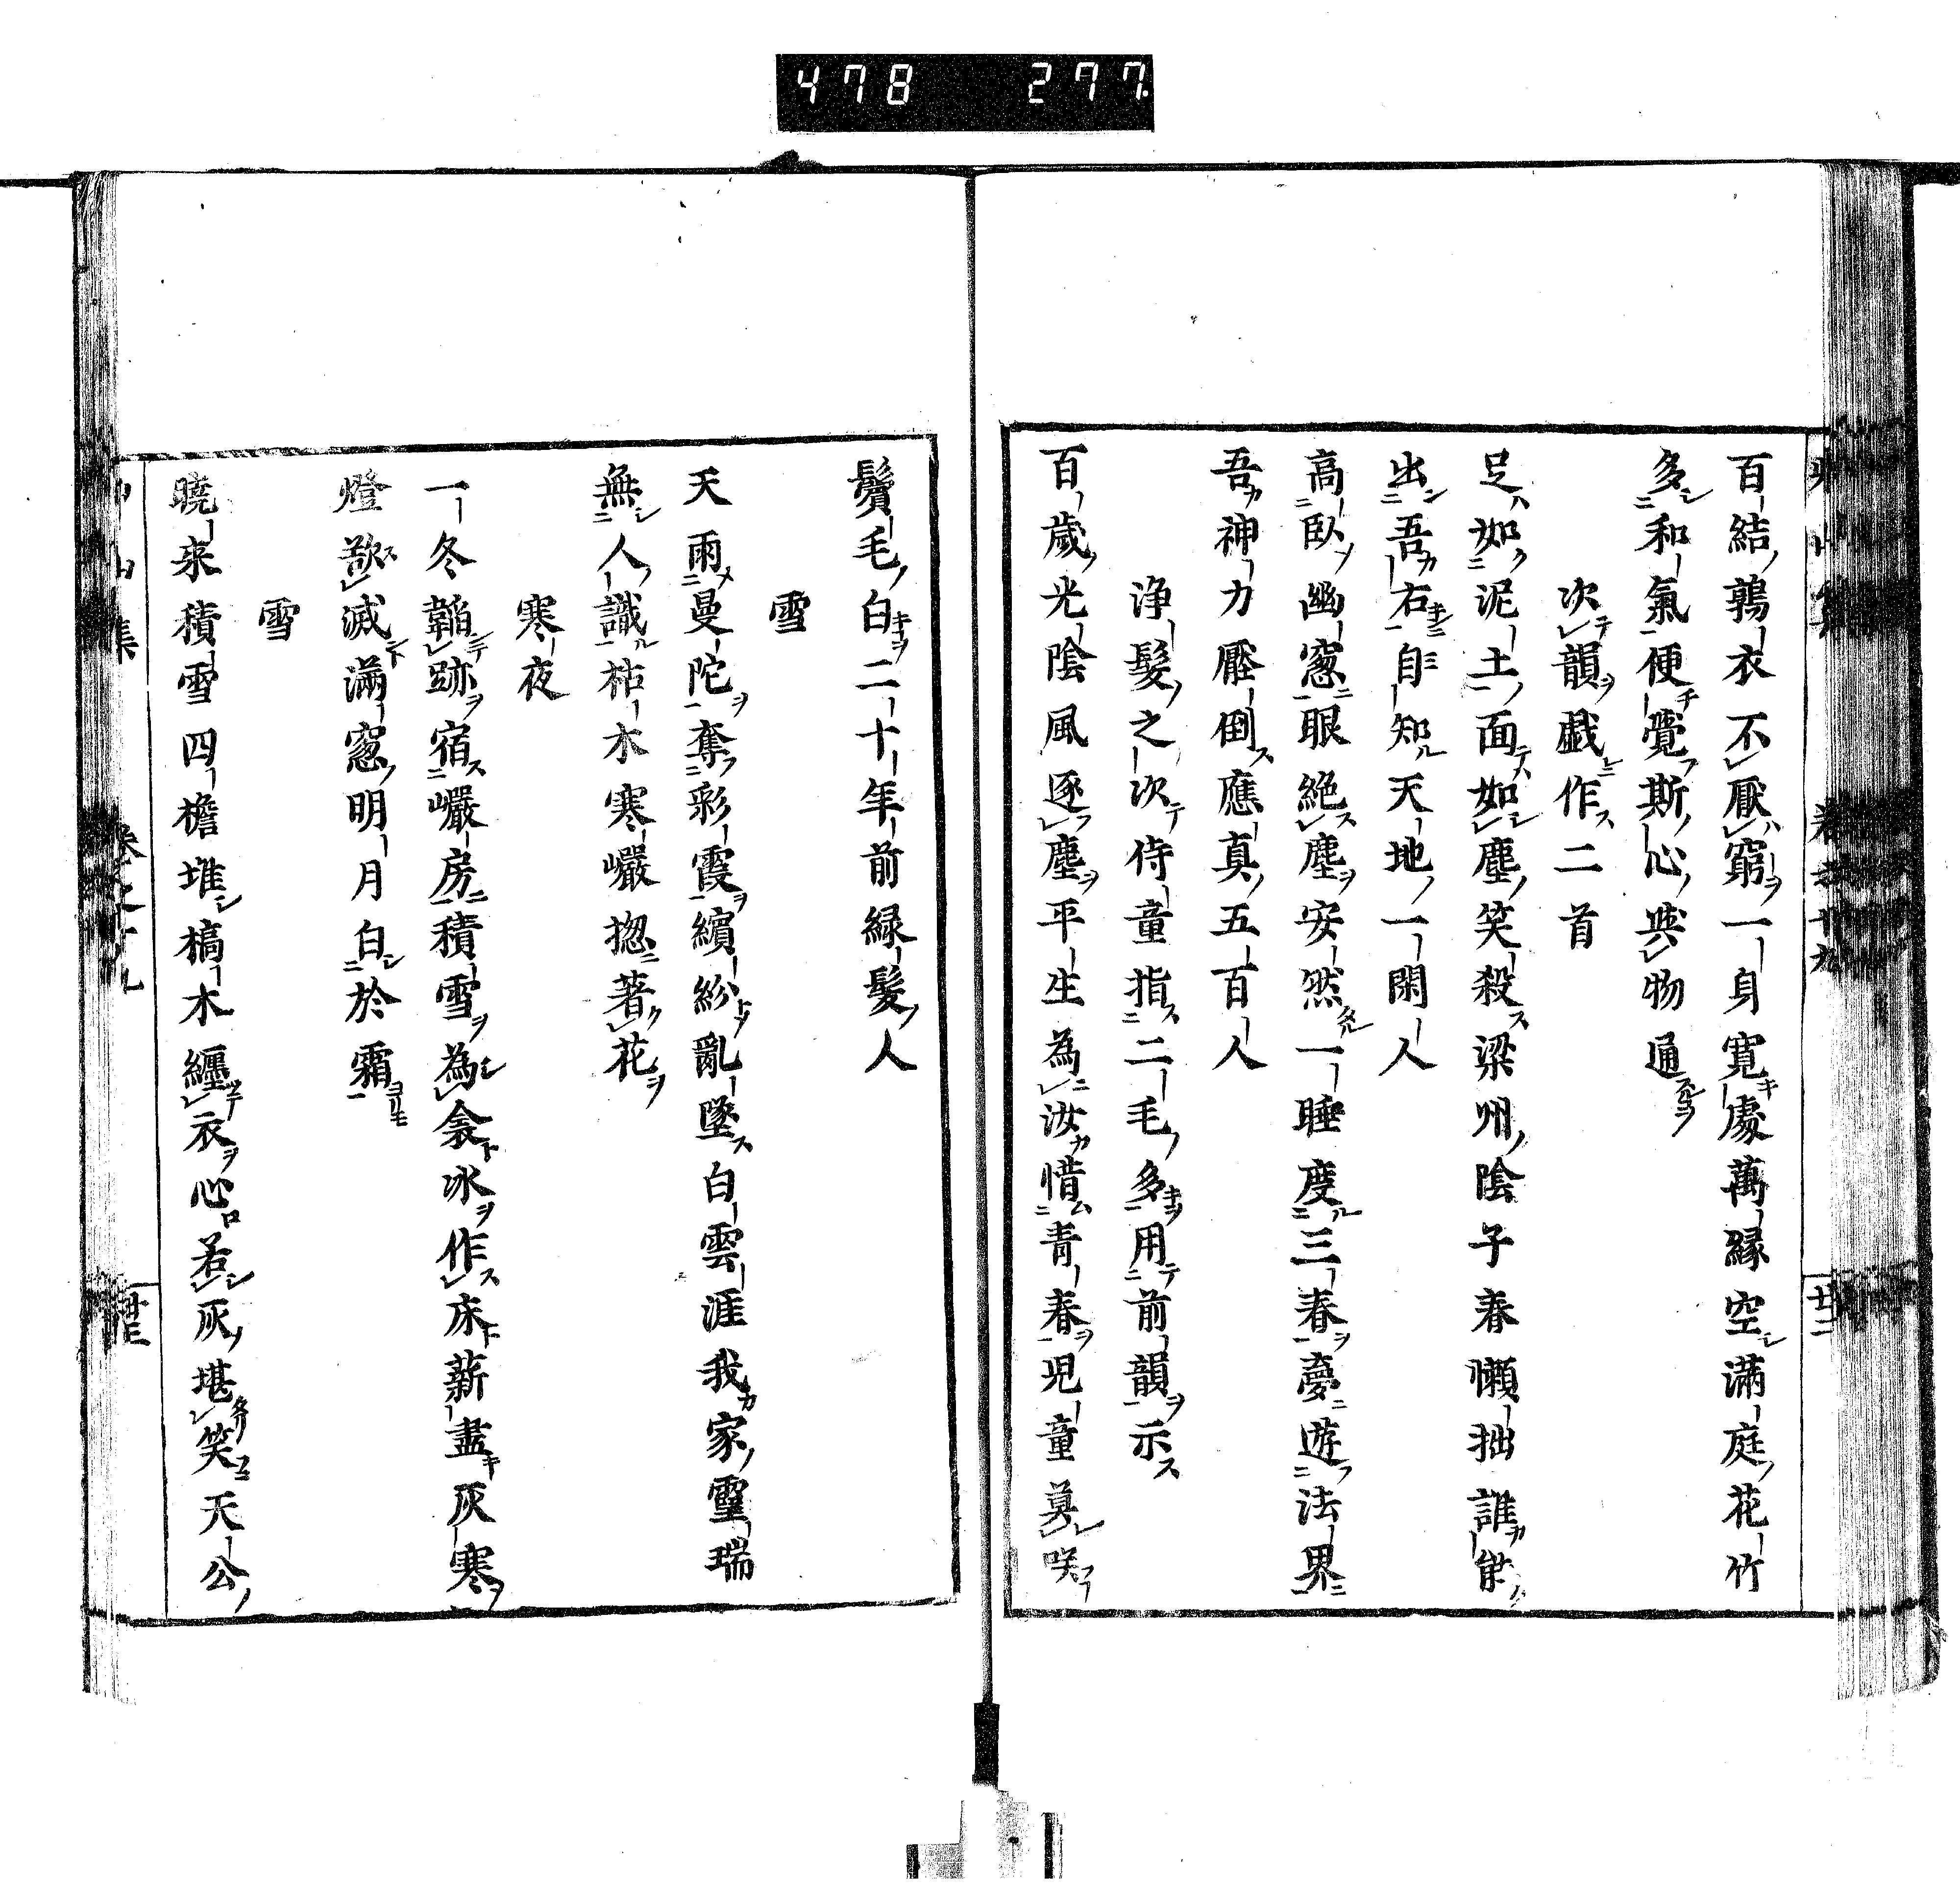 478 297
百結鶉衣不厭窮一身寛處萬縁空滿庭花竹
多和氣便覺斯心與物通
次韻戯作二首
足如泥土面如塵笑殺梁州陰子春懶拙誰能
出吾右自知天地一閑人
高臥幽窓眼絶塵安然一睡度三春夢遊法界
吾神力壓倒應真五百人
浄髮之次侍童指二毛多用前韻示
百歳光陰風逐塵平生為汝惜青春児童莫咲
鬢毛白二十年前緑髮人
雪
天雨曼陀奪彩霞繽紛亂墜白雲涯我家靈瑞
無人識枯木寒巖捴著花
寒夜
一冬韜跡宿巖房積雪為衾氷作床薪盡灰寒
燈欲滅滿窓明月白於霜
雪
曉来積雪四檐堆槁木纒衣心若灰堪笑天公